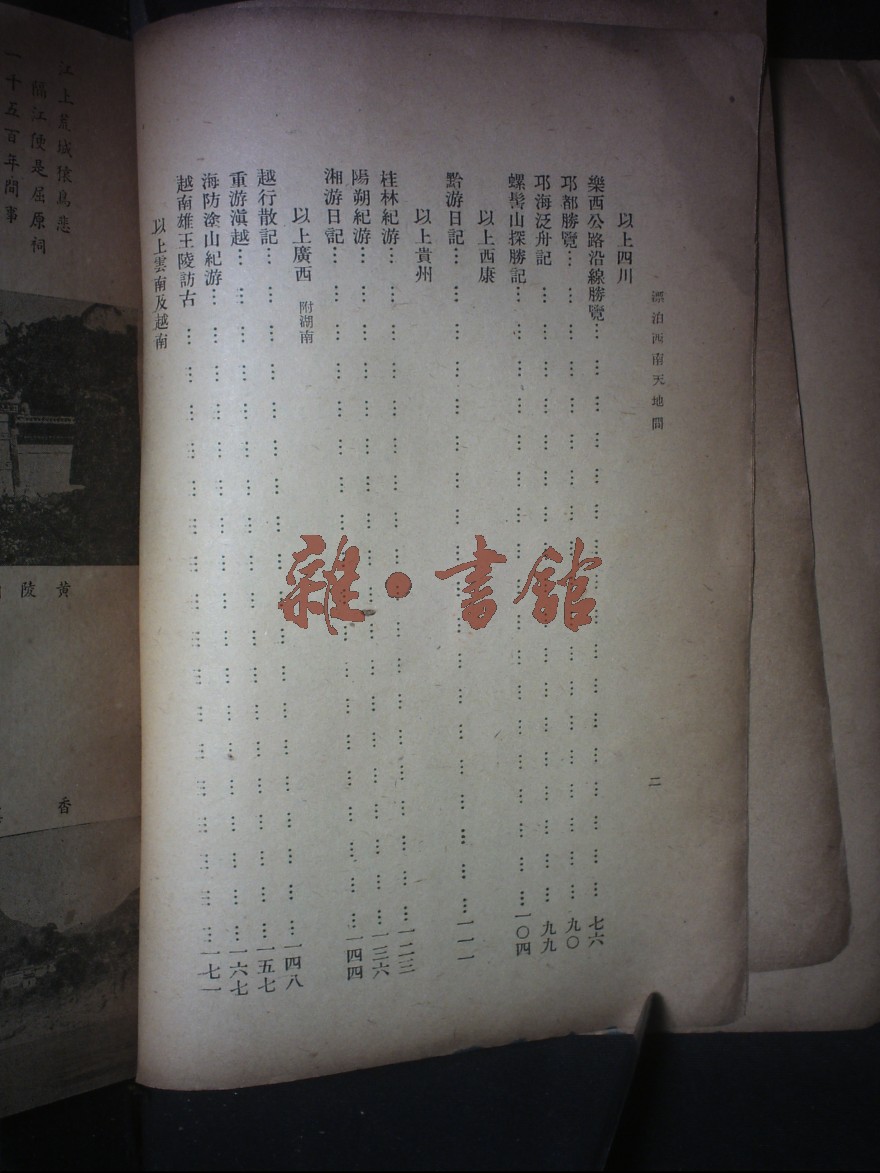 漂泊西南天地間 二
以上四川
樂西公路沿線勝覽………七六
邛都勝覽………九〇
邛海泛舟記………九九
螺髻山探勝記………一〇四
以上西康
黔游日記………一一一
以上貴州
桂林紀游………一二三
陽朔紀游………一三六
湘游日記………一四四
以上廣西 附湖南
越行散記………一四八
重游滇越………一五七
海防塗山紀游………一六七
越南雄王陵訪古………一七一
以上雲南及越南
江上荒城猿鳥悲
隔江便是屈原祠
一千五百年間事
黄陵
香
雜·書館